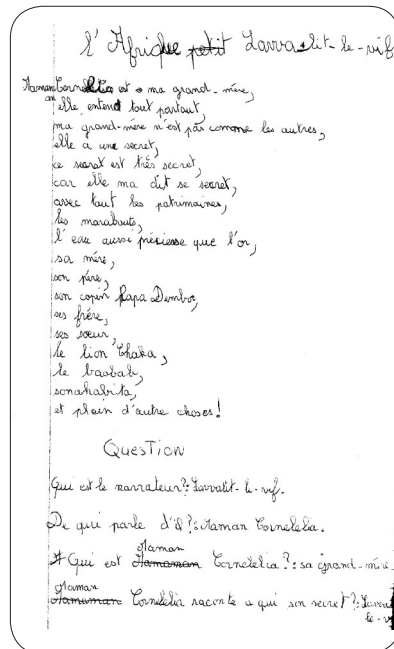 L'Afrique petit Lavra lit-le-vif
Maman Cornelelia est ma grand-mère,
elle entend tout partout,
ma grand-mère n'est pas comme les autres,
elle a une secret,
ce secret est très secret,
car elle ma dit se secret,
avec tout les patrimaines,
les marabouts,
l'eau aussi précieuse que l'or,
sa mère,
son père,
son copin Papa Dembo,
ses frère,
ses sœur,
le lion Chaka,
le baobab,
sonahabita,
et plain d'autre choses!
QUESTION
Qui est le narrateur?: Lavralit-le-vif.
De qui parle d'il?: Maman Cornelelia.
Qui est Maman Cornelelia?: sa grand-mère
Maman Cornelelia raconte a qui son secret?:
le-v